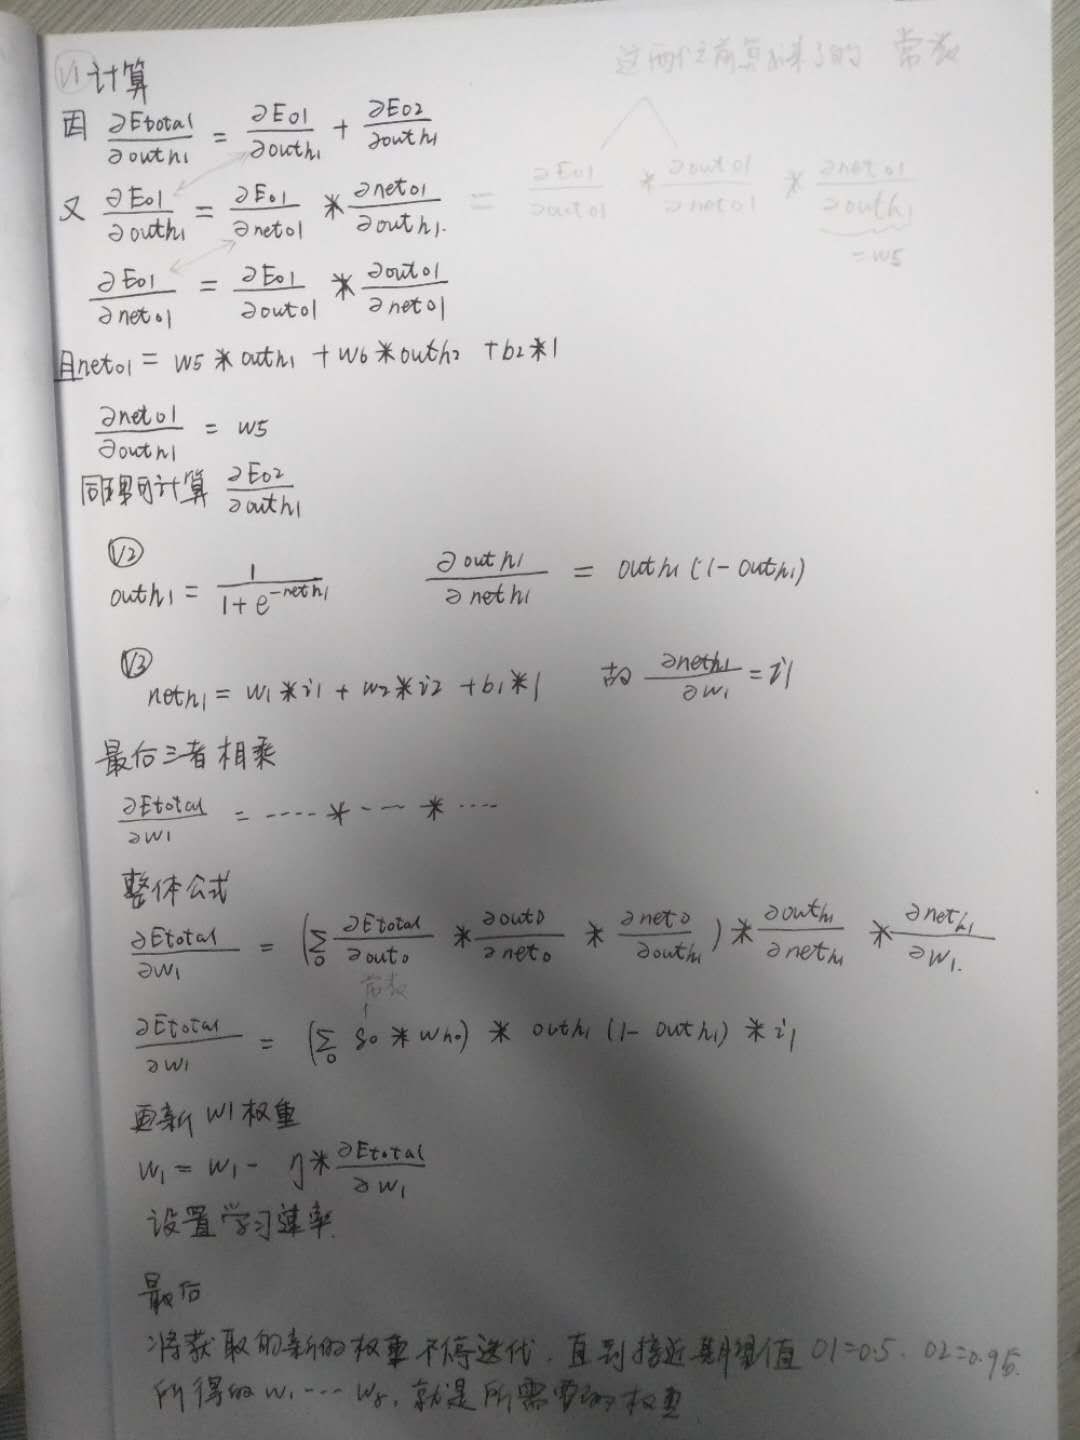 V1 计算 这两个之前算出来了的 常数
因 ∂Etotal/∂outh1 = ∂Eo1/∂outh1 + ∂Eo2/∂outh1
又 ∂Eo1/∂outh1 = ∂Eo1/∂neto1 * ∂neto1/∂outh1. = ∂Eo1/∂outo1 * ∂outo1/∂neto1 * ∂neto1/∂outh1
= w5
∂Eo1/∂neto1 = ∂Eo1/∂outo1 * ∂outo1/∂neto1
且neto1 = w5 * outh1 + w6 * outh2 + b2 * 1
∂neto1/∂outh1 = w5
同理可计算 ∂Eo2/∂outh1
V2
outh1 = 1/(1+e^-neth1) ∂outh1/∂neth1 = outh1 (1-outh1)
V3
neth1 = w1 * i1 + w2 * i2 + b1 * 1 故 ∂neth1/∂w1 = i1
最后三者相乘
∂Etotal/∂w1 = ---- * --- * ----
整体公式
∂Etotal/∂w1 = (∑o ∂Etotal/∂outo * ∂outo/∂neto * ∂neto/∂outh1) * ∂outh1/∂neth1 * ∂neth1/∂w1.
常数
∂Etotal/∂w1 = (∑o δo * who) * outh1 (1-outh1) * i1
更新 w1 权重
w1 = w1 - η * ∂Etotal/∂w1
设置学习速率.
最后
将获取的新的权重不停迭代, 直到接近期望值 O1=0.5. O2=0.95.
所得的 w1 --- w8, 就是所需要的权重